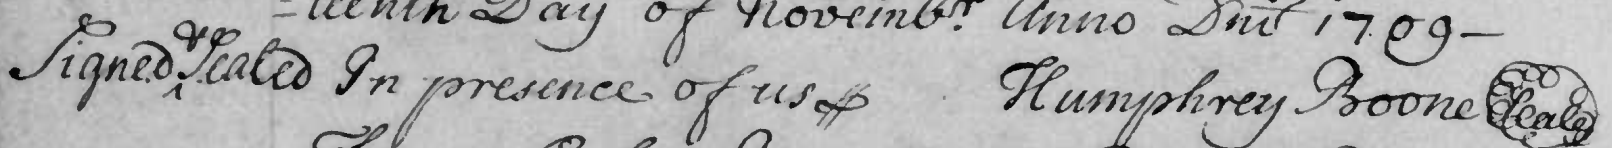 =teenth Day of Novemb:r Anno Dni 1709-
Signed & Sealed In presence of us Humphrey Boone Seale